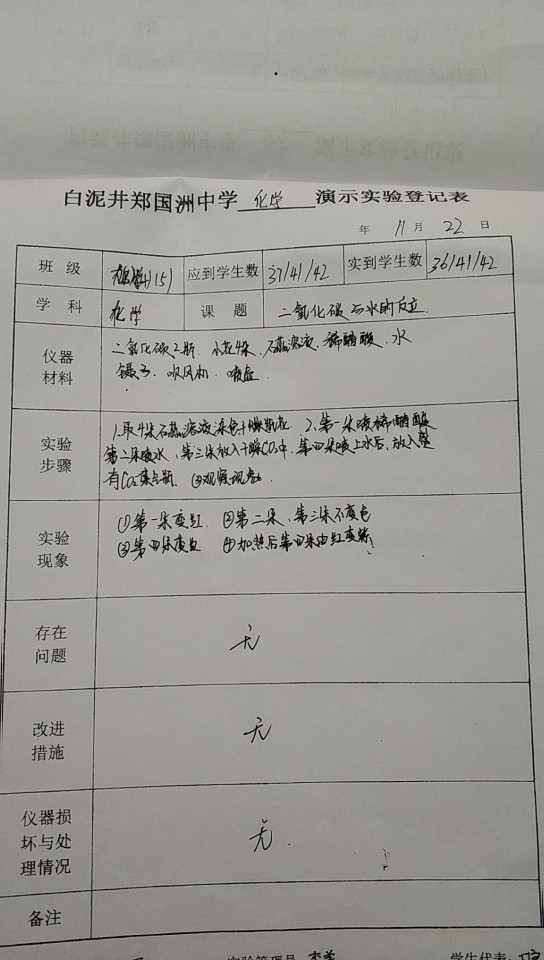 白泥井郑国洲中学 化学 演示实验登记表
年 11 月 22 日
班 级 应到学生数 37/41/42 实到学生数 36/41/42
学 科 化学 课 题 二氧化碳与水的反应
仪器材料 二氧化碳2瓶 小花4朵、石蕊溶液、稀醋酸、水
镊子、吹风机、喷壶
实验步骤 1.取4朵石蕊溶液染色干燥 2.第一朵喷稀醋酸
第二朵喷水、第三朵放入干燥CO2中、第四朵喷上水后,放入盛
有CO2集气瓶. ③观察现象
实验现象 ①第一朵变红. ②第二朵、第三朵不变色
③第四朵变红 ④加热后第四朵由红变紫
存在问题 无
改进措施 无
仪器损坏与处理情况 无.
备注
实验管理员 学生代表: